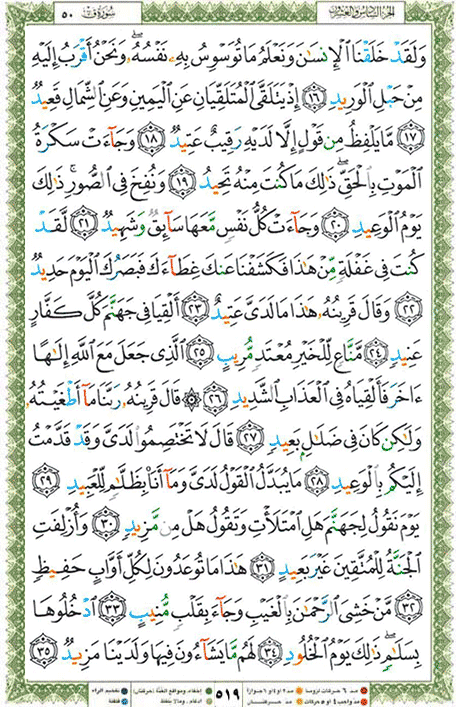 الجزء السادس والعشرون سورة ق ٥٠
وَلَقَدْ خَلَقْنَا ٱلْإِنسَٰنَ وَنَعْلَمُ مَا تُوَسْوِسُ بِهِۦ نَفْسُهُۥ ۖ وَنَحْنُ أَقْرَبُ إِلَيْهِ
مِنْ حَبْلِ ٱلْوَرِيدِ ١٦ إِذْ يَتَلَقَّى ٱلْمُتَلَقِّيَانِ عَنِ ٱلْيَمِينِ وَعَنِ ٱلشِّمَالِ قَعِيدٌ
١٧ مَّا يَلْفِظُ مِن قَوْلٍ إِلَّا لَدَيْهِ رَقِيبٌ عَتِيدٌ ١٨ وَجَآءَتْ سَكْرَةُ
ٱلْمَوْتِ بِٱلْحَقِّ ۖ ذَٰلِكَ مَا كُنتَ مِنْهُ تَحِيدُ ١٩ وَنُفِخَ فِى ٱلصُّورِ ۚ ذَٰلِكَ
يَوْمُ ٱلْوَعِيدِ ٢٠ وَجَآءَتْ كُلُّ نَفْسٍ مَّعَهَا سَآئِقٌ وَشَهِيدٌ ٢١ لَّقَدْ
كُنتَ فِى غَفْلَةٍ مِّنْ هَٰذَا فَكَشَفْنَا عَنكَ غِطَآءَكَ فَبَصَرُكَ ٱلْيَوْمَ حَدِيدٌ
٢٢ وَقَالَ قَرِينُهُۥ هَٰذَا مَا لَدَىَّ عَتِيدٌ ٢٣ أَلْقِيَا فِى جَهَنَّمَ كُلَّ كَفَّارٍ
عَنِيدٍ ٢٤ مَّنَّاعٍ لِّلْخَيْرِ مُعْتَدٍ مُّرِيبٍ ٢٥ ٱلَّذِى جَعَلَ مَعَ ٱللَّهِ إِلَٰهًا
ءَاخَرَ فَأَلْقِيَاهُ فِى ٱلْعَذَابِ ٱلشَّدِيدِ ٢٦ ۞ قَالَ قَرِينُهُۥ رَبَّنَا مَآ أَطْغَيْتُهُۥ
وَلَٰكِن كَانَ فِى ضَلَٰلٍۭ بَعِيدٍ ٢٧ قَالَ لَا تَخْتَصِمُوا۟ لَدَىَّ وَقَدْ قَدَّمْتُ
إِلَيْكُم بِٱلْوَعِيدِ ٢٨ مَا يُبَدَّلُ ٱلْقَوْلُ لَدَىَّ وَمَآ أَنَا۠ بِظَلَّٰمٍ لِّلْعَبِيدِ ٢٩
يَوْمَ نَقُولُ لِجَهَنَّمَ هَلِ ٱمْتَلَأْتِ وَتَقُولُ هَلْ مِن مَّزِيدٍ ٣٠ وَأُزْلِفَتِ
ٱلْجَنَّةُ لِلْمُتَّقِينَ غَيْرَ بَعِيدٍ ٣١ هَٰذَا مَا تُوعَدُونَ لِكُلِّ أَوَّابٍ حَفِيظٍ
٣٢ مَّنْ خَشِىَ ٱلرَّحْمَٰنَ بِٱلْغَيْبِ وَجَآءَ بِقَلْبٍ مُّنِيبٍ ٣٣ ٱدْخُلُوهَا
بِسَلَٰمٍ ۖ ذَٰلِكَ يَوْمُ ٱلْخُلُودِ ٣٤ لَهُم مَّا يَشَآءُونَ فِيهَا وَلَدَيْنَا مَزِيدٌ ٣٥
٥١٩